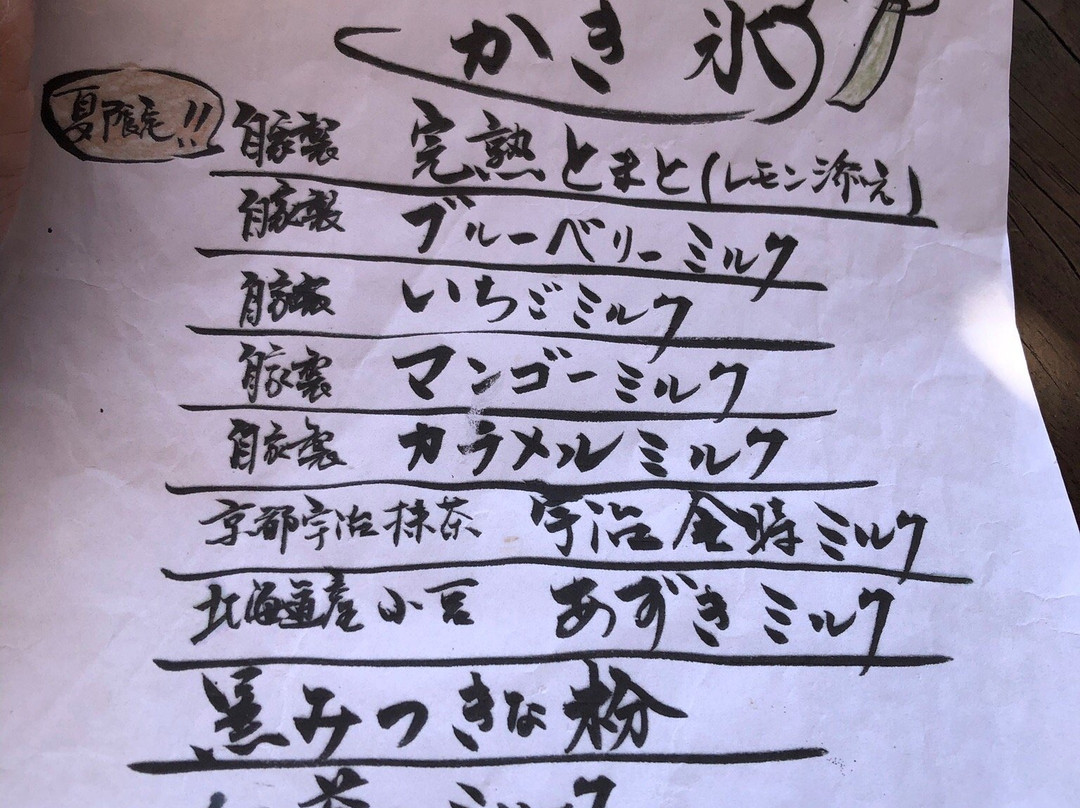 かき氷
夏限定!!
自家製 完熟とまと(レモン添え)
自家製 ブルーベリーミルク
自家製 いちごミルク
自家製 マンゴーミルク
自家製 カラメルミルク
京都宇治抹茶 宇治金時ミルク
北海道産小豆 あずきミルク
黒みつきな粉
茶ミルク